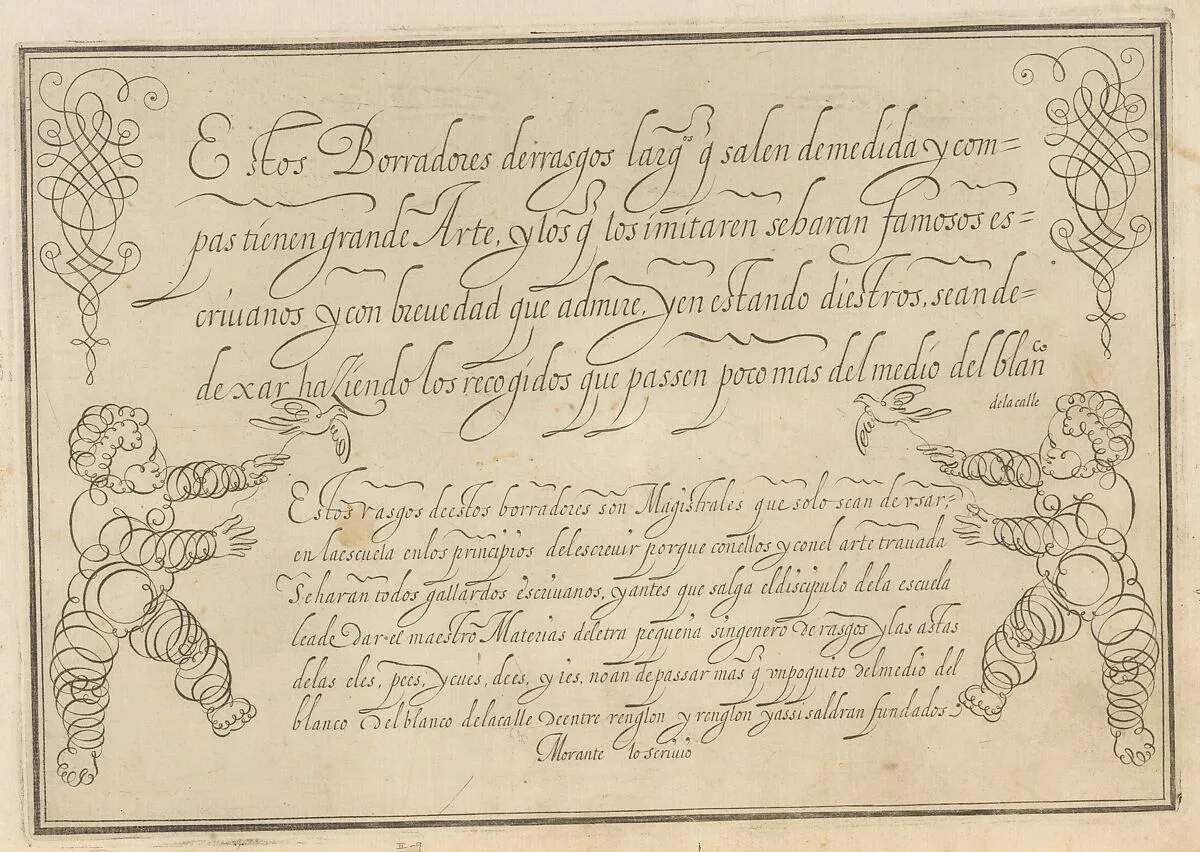 Estos Borradores derrasgos largos q̃ salen demedida y com=
pas tienen grande Arte, y los q̃ los imitaren seharan famosos es=
criuanos y con breuedad que admire, y en estando diestros, sean de=
dexar haziendo los recogidos que passen poco mas del medio del blanco
de la calle
Estos rasgos deestos borradores son Magistrales que solo sean de vsar,
en la escuela en los principios del escreuir porque con ellos y con el arte trauada
Se haran todos gallardos escriuanos, y antes que salga el discipulo de la escuela
leade Dar el maestro Materias de letra pequeña sin genero De rasgos y las astas
de las eles, pees, y cues, dees, y ies, no an de passar mas q̃ vn poquito Del medio del
blanco Del blanco de la calle De entre renglon y renglon y assi saldran fundados
Morante lo scriuio
II-9